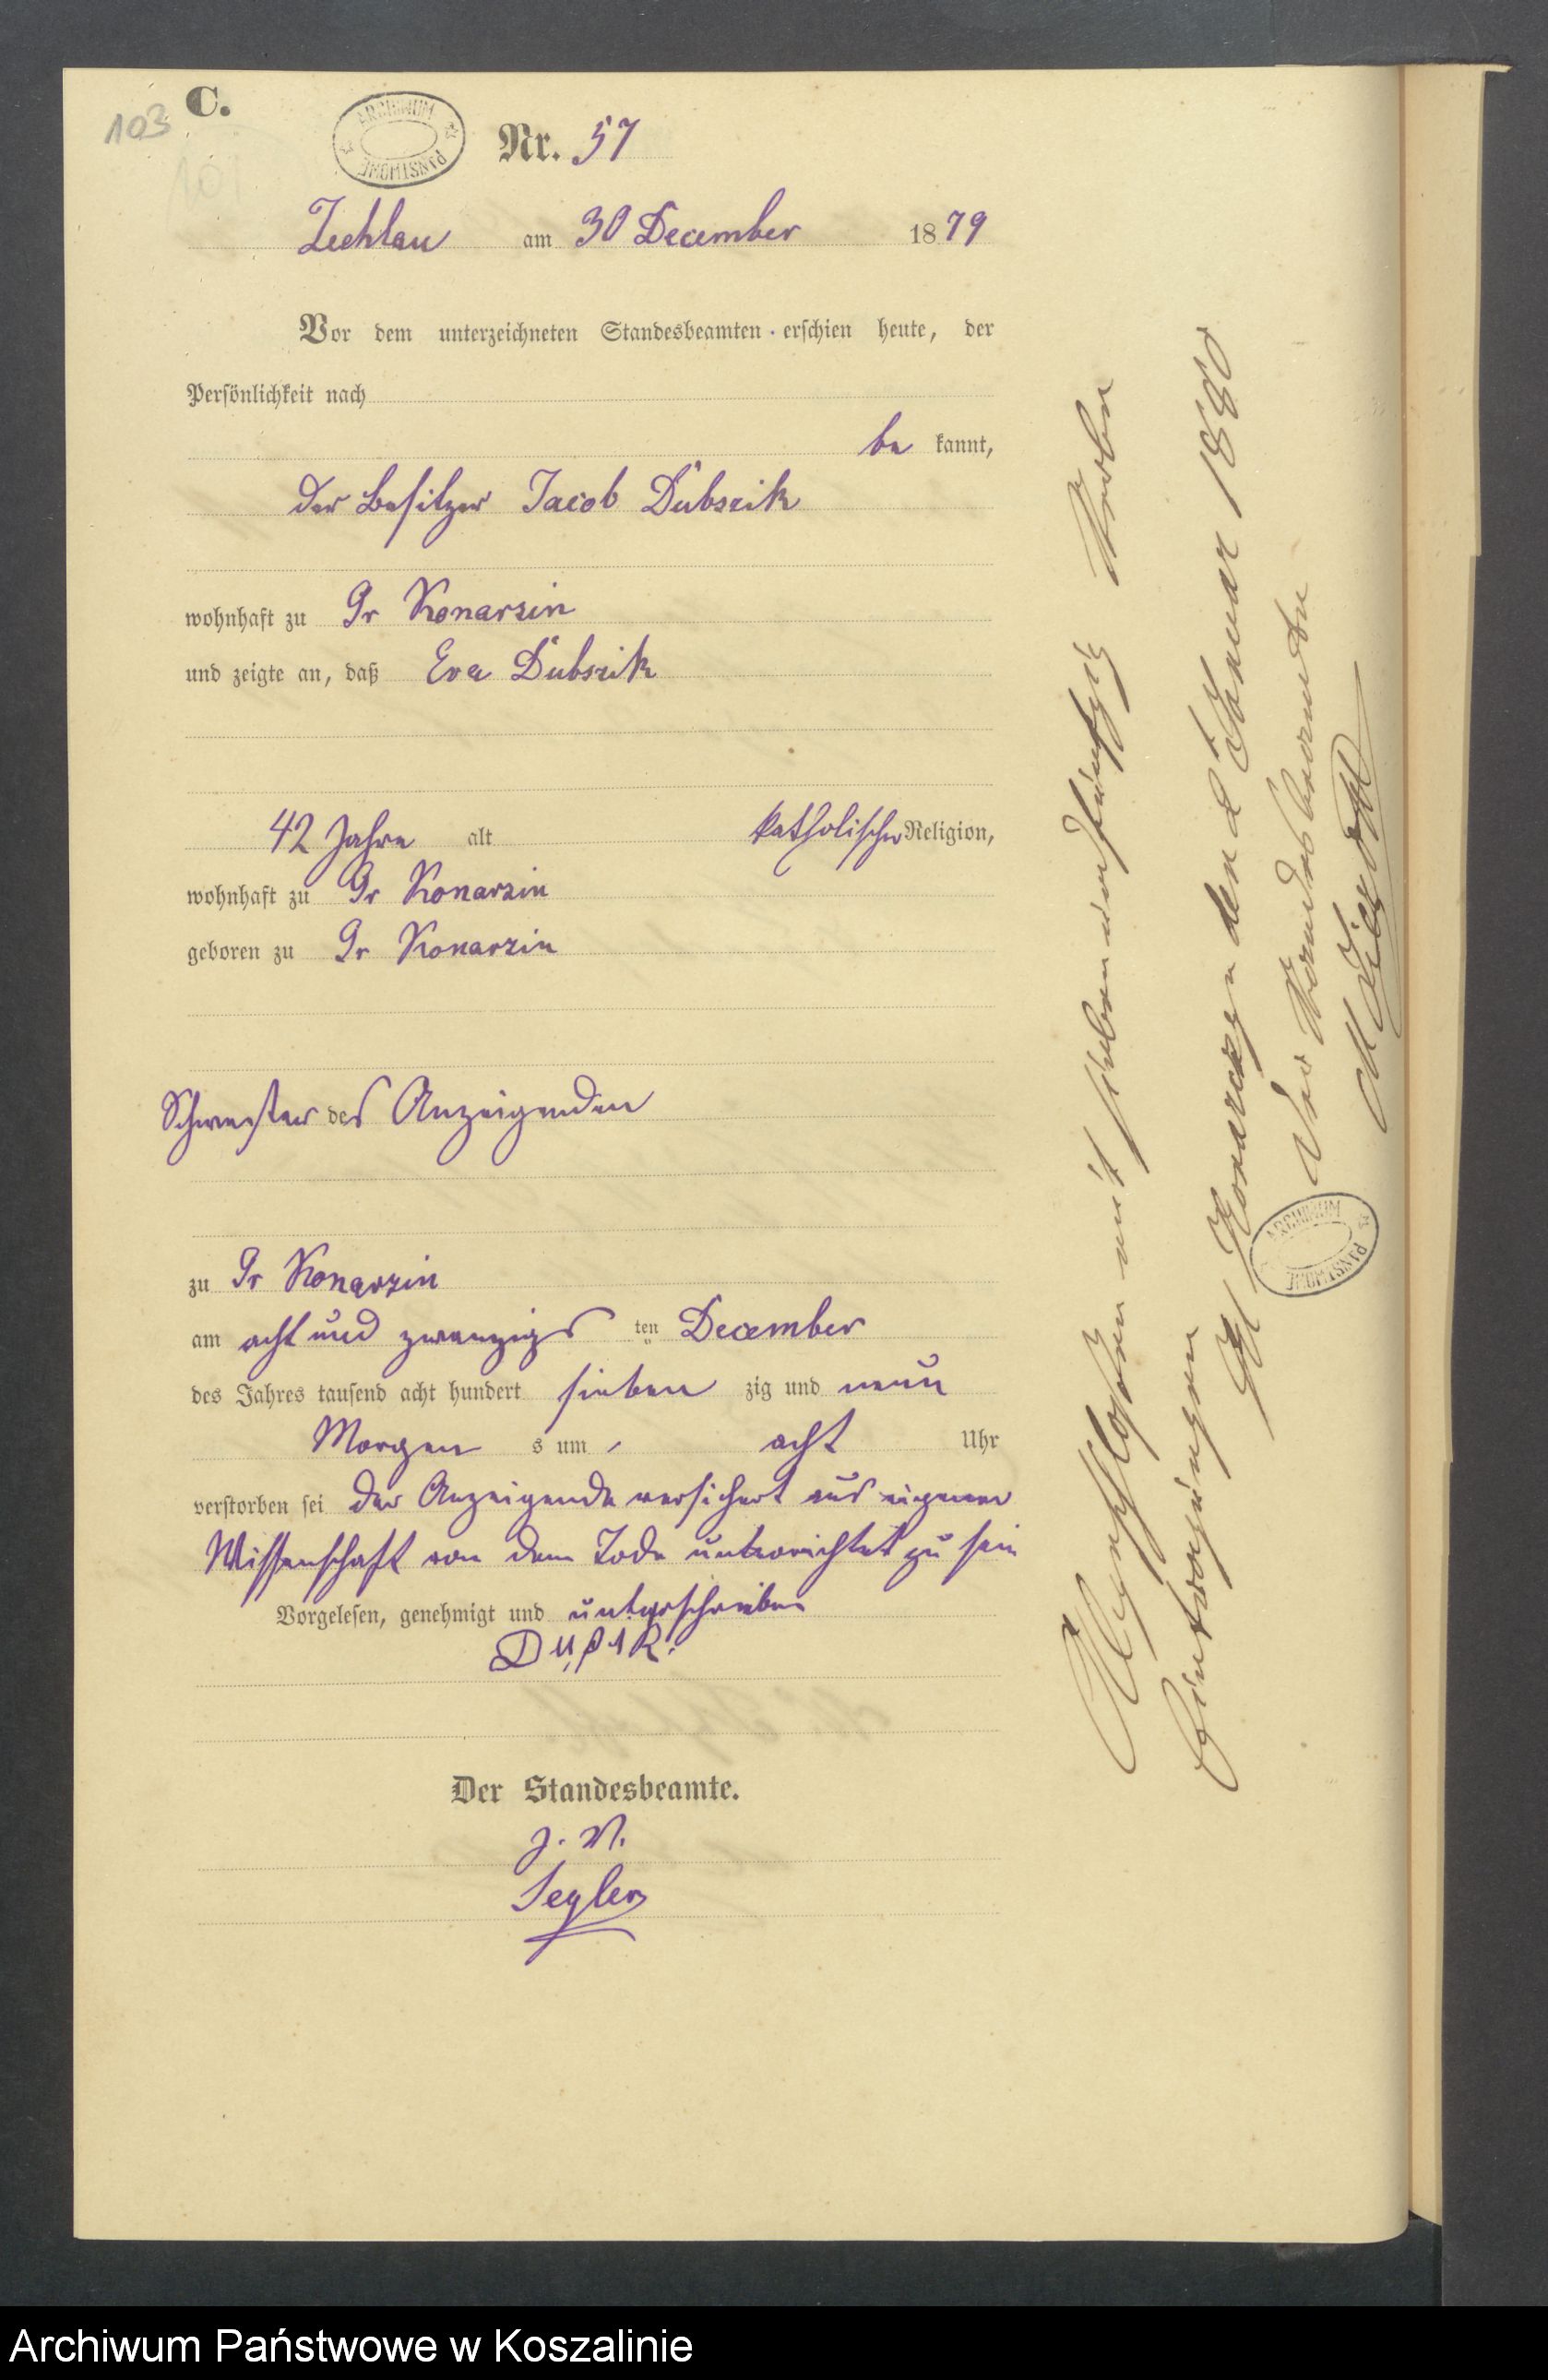 103
C.
101
ARCHIWUM PAŃSTWOWE
Nr. 57
Zechlau am 30 December 1879
Vor dem unterzeichneten Standesbeamten erschien heute, der
Persönlichkeit nach
be kannt,
der Besitzer Jacob Dubszik
wohnhaft zu Gr Konarzin
und zeigte an, daß Eva Dubszik
42 Jahre alt katholischer Religion,
wohnhaft zu Gr Konarzin
geboren zu Gr Konarzin
Schwester des Anzeigenden
zu Gr Konarzin
am acht und zwanzigs ten December
des Jahres tausend acht hundert sieben zig und neun
Morgen s um acht Uhr
verstorben sei der Anzeigende versichert aus eigener
Wissenschaft von dem Tode unterrichtet zu sein
Vorgelesen, genehmigt und unterschrieben
Der Standesbeamte.
J. V.
Segler
Abgeschlossen mit sieben und fünfzig Sterbe
Eintragungen
Gl Konarczyn den 2t Januar 1880
Der Standesbeamte
ARCHIWUM PAŃSTWOWE
Archiwum Państwowe w Koszalinie